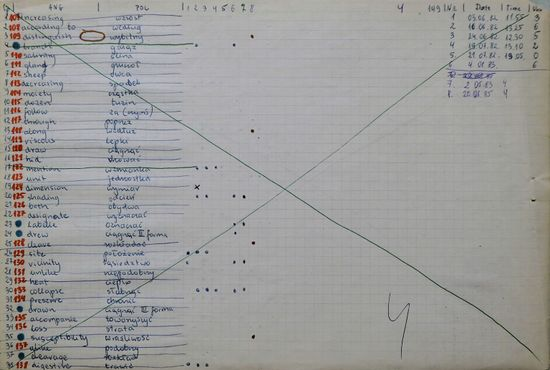 ANG POL 1 2 3 4 5 6 7 8
1 107 increasing wzrost
2 108 according to według
3 109 distinguish wybitny
4 branch gałąź
5 110 salivary ślina
6 111 gland gruczoł
7 112 sheep owca
8 113 decreasing spadek
9 114 moiety cząstka
10 115 dozen tuzin
11 116 follow za (czymś)
12 117 through poprzez
13 118 along wzdłuż
14 119 viscous lepki
15 120 draw ciągnąć
16 121 hid
17 122 mention wzmianka
18 123 unit jednostka
19 124 dimension wymiar
20 125 shading odcień
21 126 both obydwa
22 127 designate wyznaczać
23 Labelle oznaczać
24 drew ciągnąć II forma
25 128 cleave rozkładać
26 129 site położenie
27 130 vicinity sąsiedztwo
28 131 unlike niepodobny
29 132 heat ciepło
30 133 collapse słabnąć
31 134 preserve chronić
32 drawn ciągnąć III forma
33 135 accompanie towarzyszyć
34 136 loss strata
35 susceptibility wrażliwość
36 137 alike podobny
37 cleavage rozkład
38 138 digestive trawić
4
Nr Date Time
1 11.55 3
2 13.25 6
3 12.30 5
4 13.10 2
5 19.05 0
6 4.01.83
7. 2.05.83 4
8. 4
4